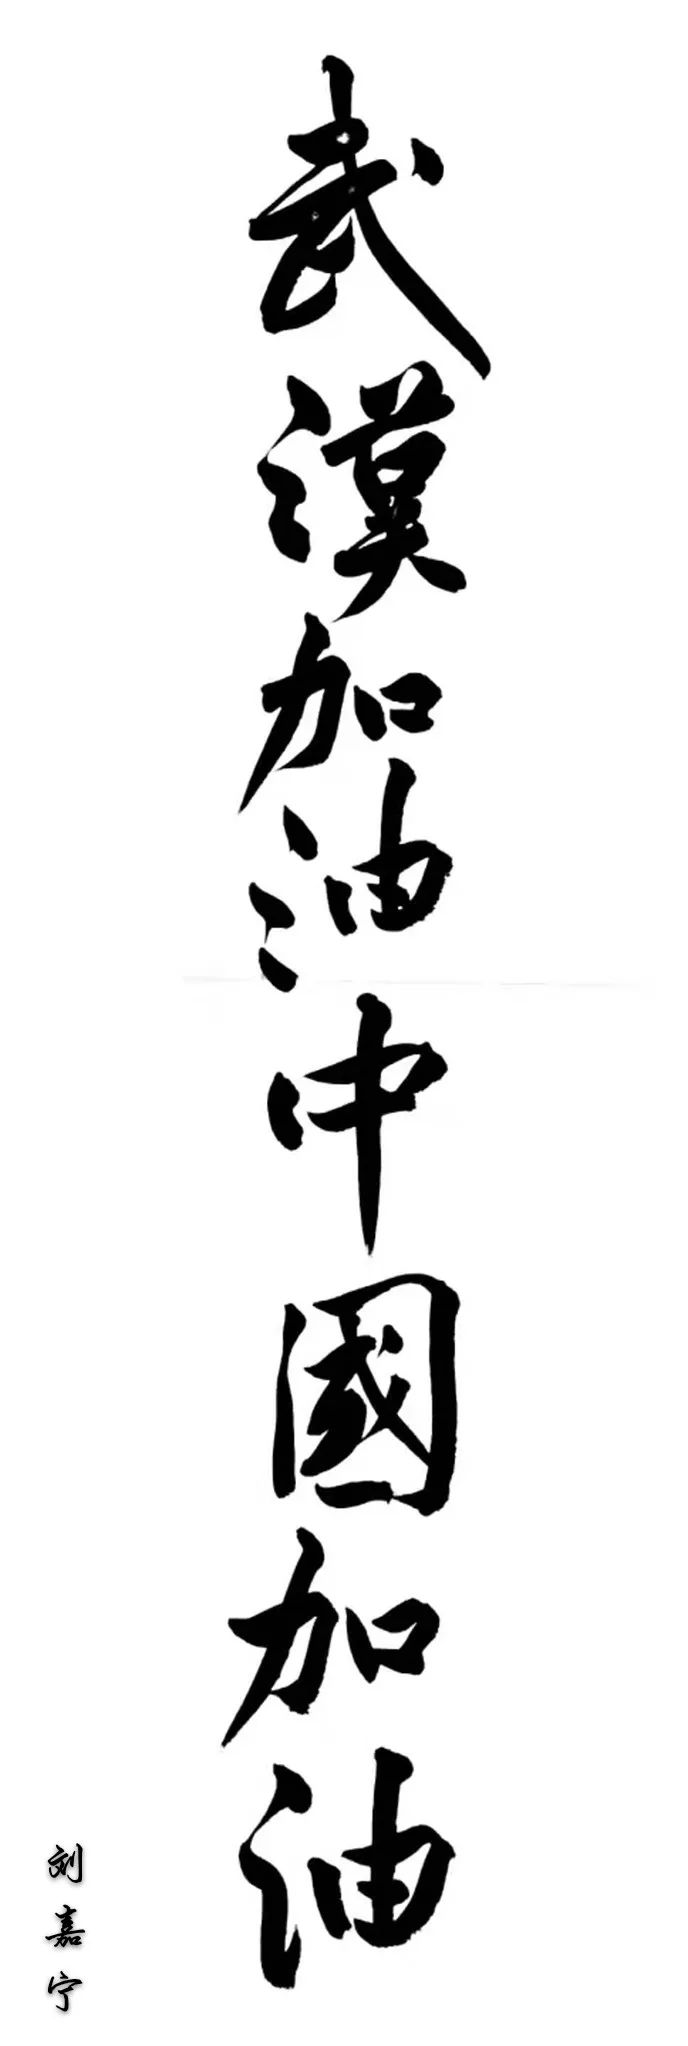 武漢加油中國加油
刘嘉宁